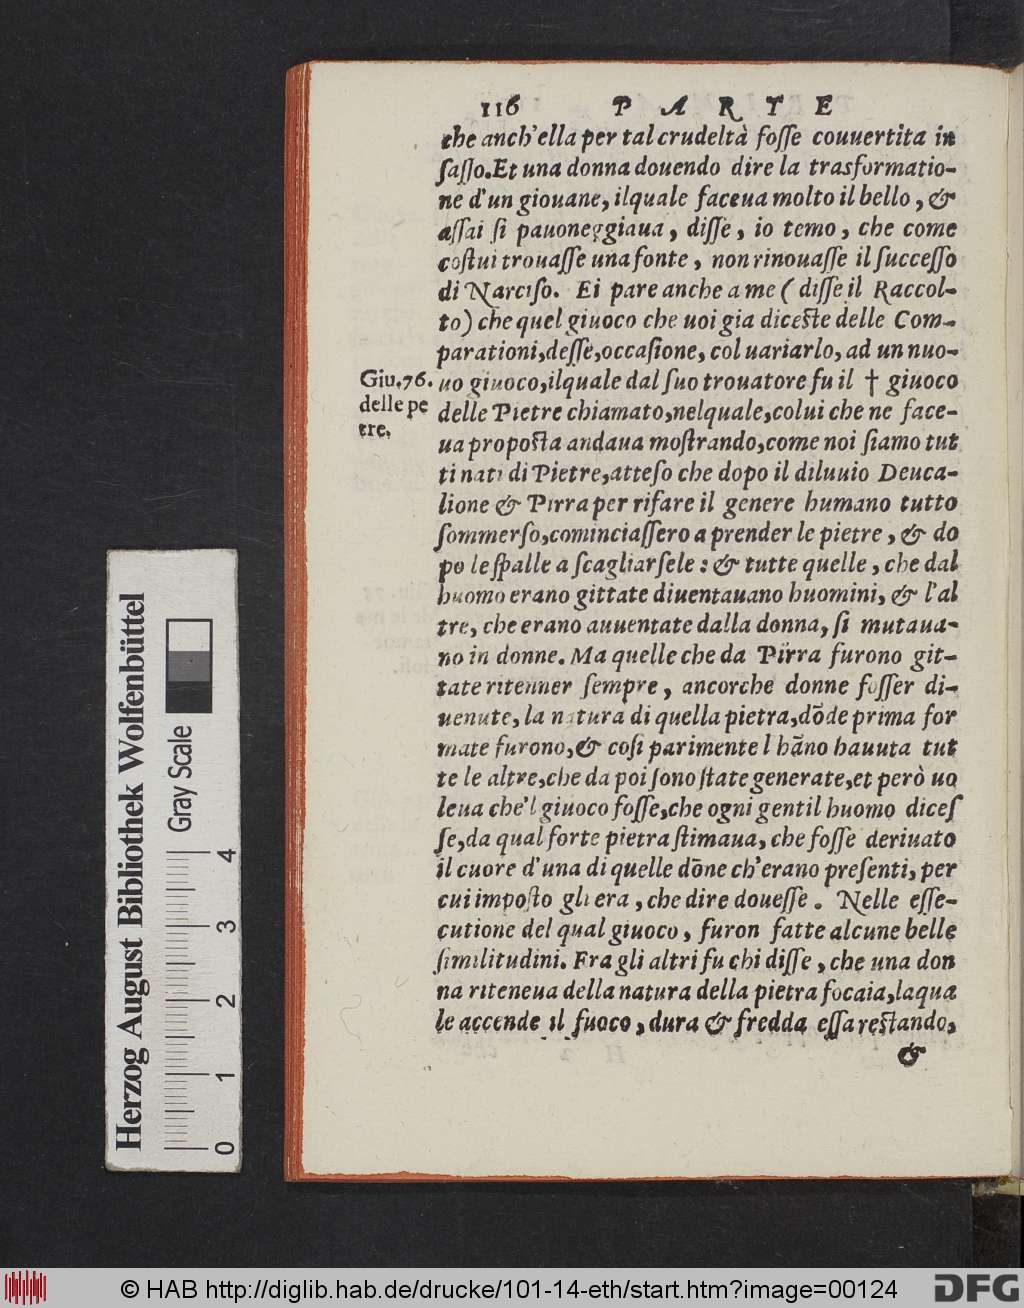 116 PARTE
che anch'ella per tal crudeltà foſſe couuertita in
ſaſſo. Et una donna douendo dire la trasformatio-
ne d'un giouane, ilquale faceua molto il bello, &
aſſai ſi pauoneggiaua, diſſe, io temo, che come
coſtui trouaſſe una fonte, non rinouaſſe il ſucceſſo
di Narciſo. Ei pare anche a me ( diſſe il Raccol-
to) che quel giuoco che uoi gia diceſte delle Com-
parationi, deſſe, occaſione, col uariarlo, ad un nuo-
Giu. 76.
delle pe
tre.
uo giuoco, ilquale dal ſuo trouatore fu il † giuoco
delle Pietre chiamato, nelquale, colui che ne face-
ua propoſta andaua moſtrando, come noi ſiamo tut
ti nati di Pietre, atteſo che dopo il diluuio Deuca-
lione & Pirra per rifare il genere humano tutto
ſommerſo, cominciaſſero a prender le pietre, & do
po le ſpalle a ſcagliarſele: & tutte quelle, che dal
huomo erano gittate diuentauano huomini, & l'al
tre, che erano auuentate dalla donna, ſi mutaua-
no in donne. Ma quelle che da Pirra furono git-
tate ritenner ſempre, ancorche donne foſſer di-
uenute, la natura di quella pietra, dõde prima for
mate furono, & coſi parimente l hãno hauuta tut
te le altre, che da poi ſono ſtate generate, et però uo
leua che'l giuoco foſſe, che ogni gentil huomo diceſ
ſe, da qual forte pietra ſtimaua, che foſſe deriuato
il cuore d'una di quelle dõne ch'erano preſenti, per
cui impoſto gli era, che dire doueſſe. Nelle eſſe-
cutione del qual giuoco, furon fatte alcune belle
ſimilitudini. Fra gli altri fu chi diſſe, che una don
na riteneua della natura della pietra focaia, laqua
le accende il fuoco, dura & fredda eſſa reſtando,
&
Herzog August Bibliothek Wolfenbüttel
Gray Scale
0 1 2 3 4
© HAB http://diglib.hab.de/drucke/101-14-eth/start.htm?image=00124
DFG